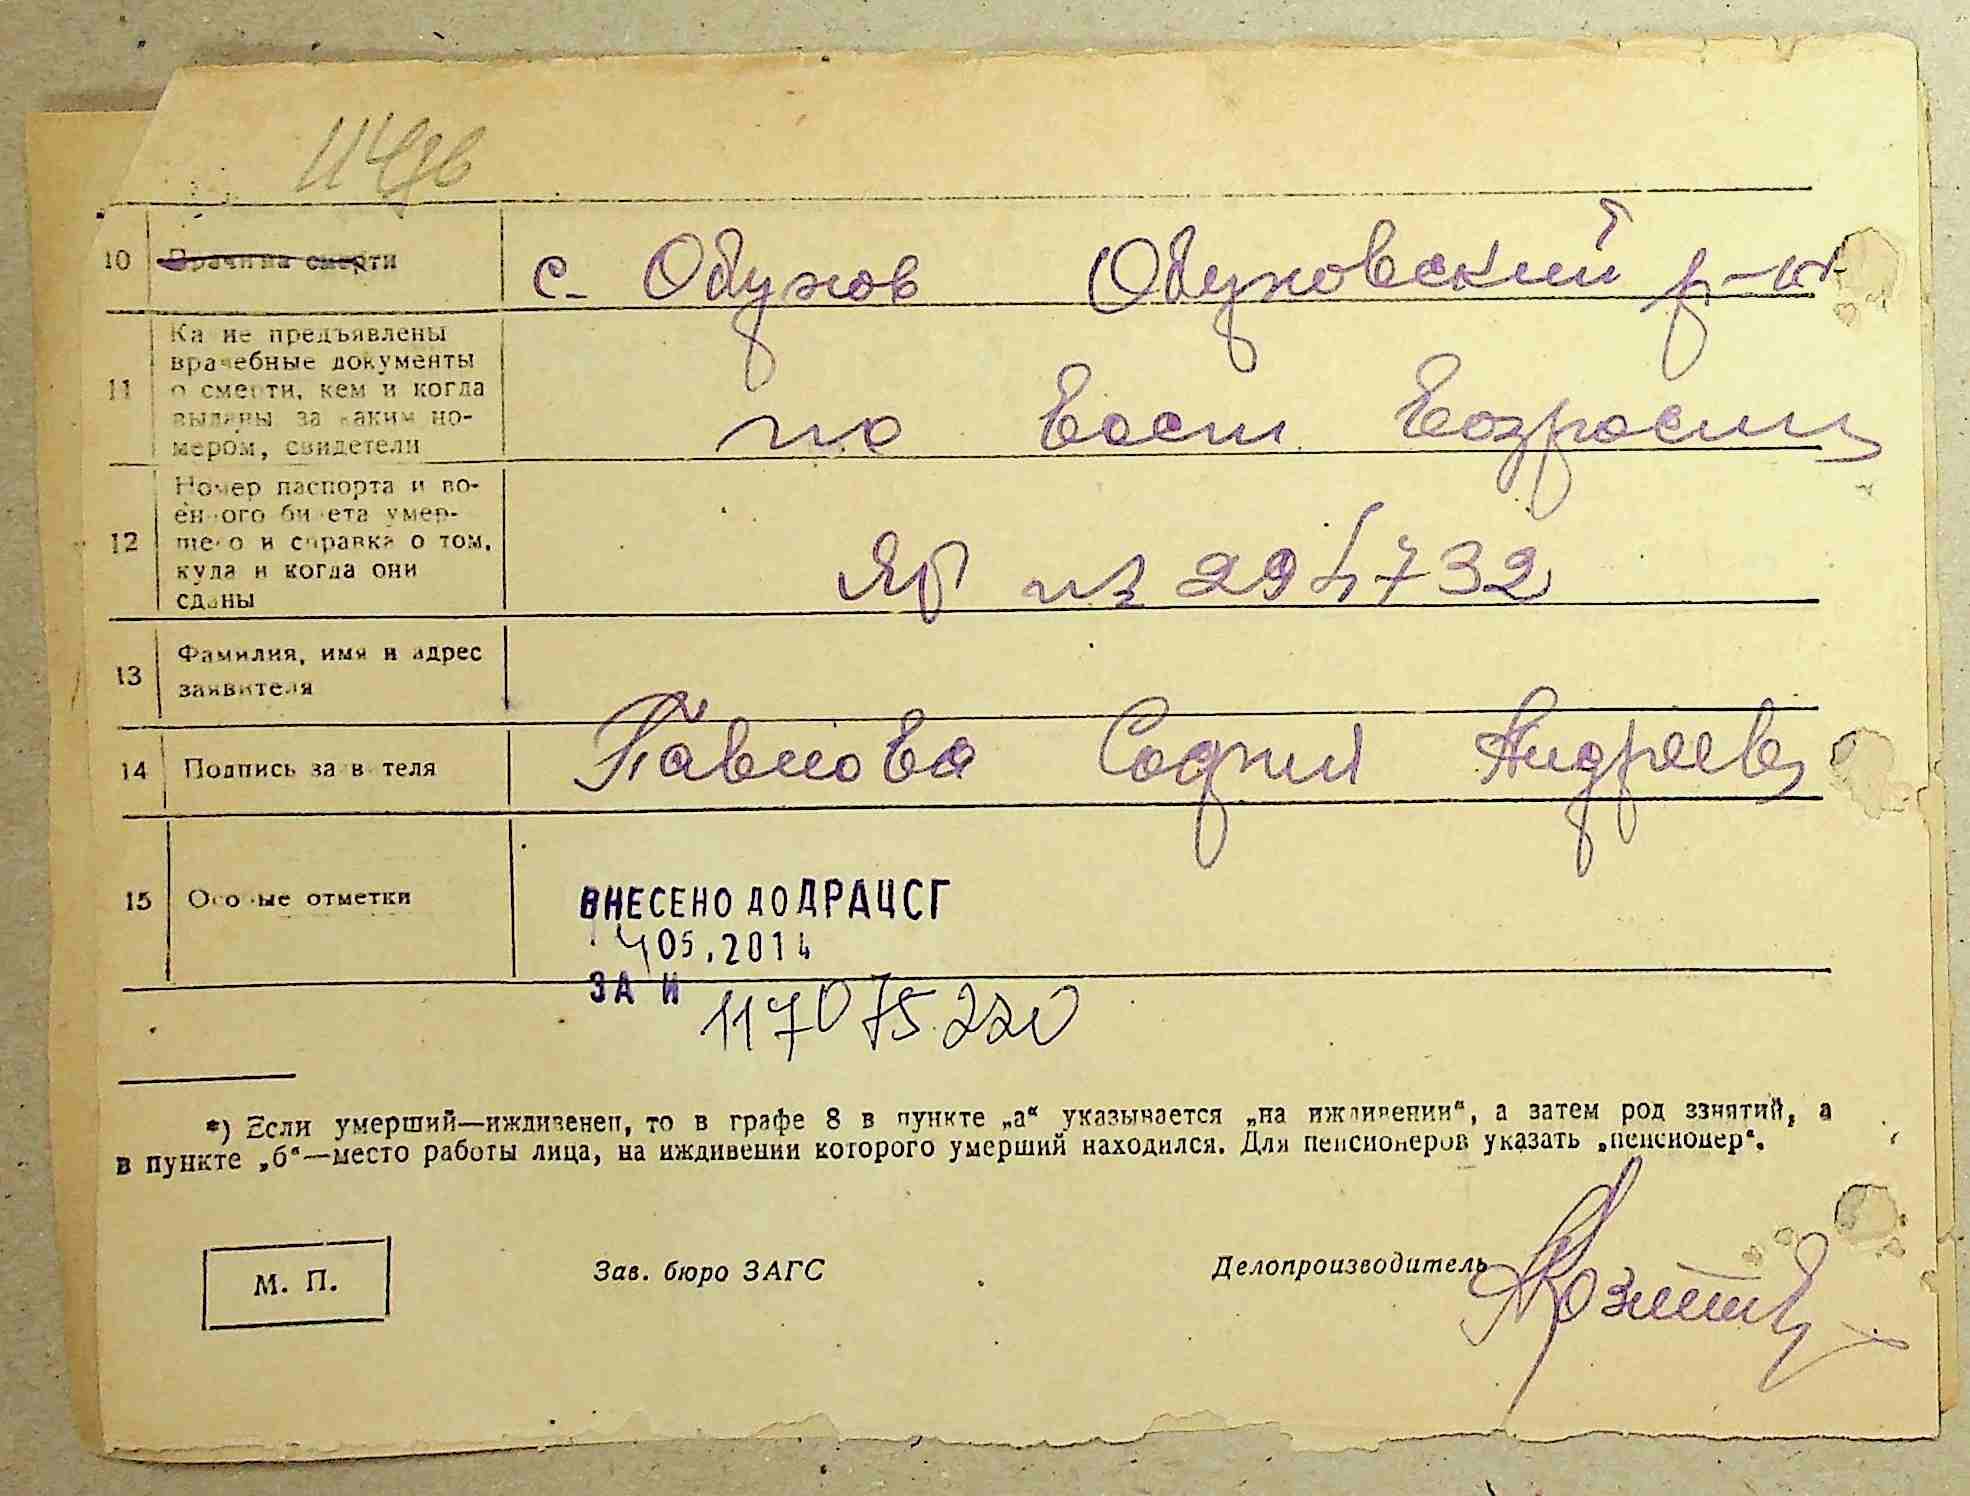 10 Причина смерти с. Обухов Обуховский р-н
11 Какие предъявлены
врачебные документы
о смерти, кем и когда
выданы за каким но-
мером, свидетели
по возрасту
12 Номер паспорта и во-
енного билета умер-
шего и справка о том,
куда и когда они
сданы
294732
13 Фамилия, имя и адрес
заявителя
14 Подпись заявителя Павлова София Андреев
15 Особые отметки
ВНЕСЕНО ДО ДРАЦСГ
05.2014
ЗА И 117075220
*) Если умерший—иждивенец, то в графе 8 в пункте „а“ указывается „на иждивении“, а затем род занятий, а
в пункте „б“—место работы лица, на иждивении которого умерший находился. Для пенсионеров указать „пенсионер“.
М. П. Зав. бюро ЗАГС Делопроизводитель